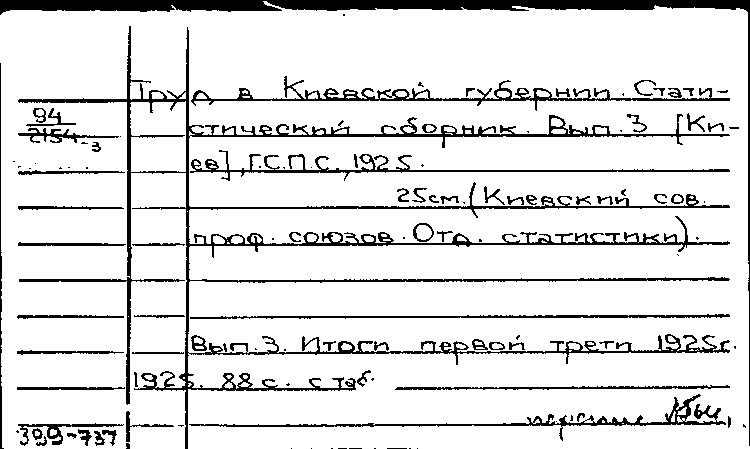 Труд в Киевской губернии. Стати-
94
2154-3
стический сборник. Вып. 3 [Ки-
ев], Г.С.П.С., 1925.
25см. (Киевский сов.
проф. союзов. Отд. статистики).
Вып. 3. Итоги первой трети 1925г.
1925. 88 с. с таб.
399-737